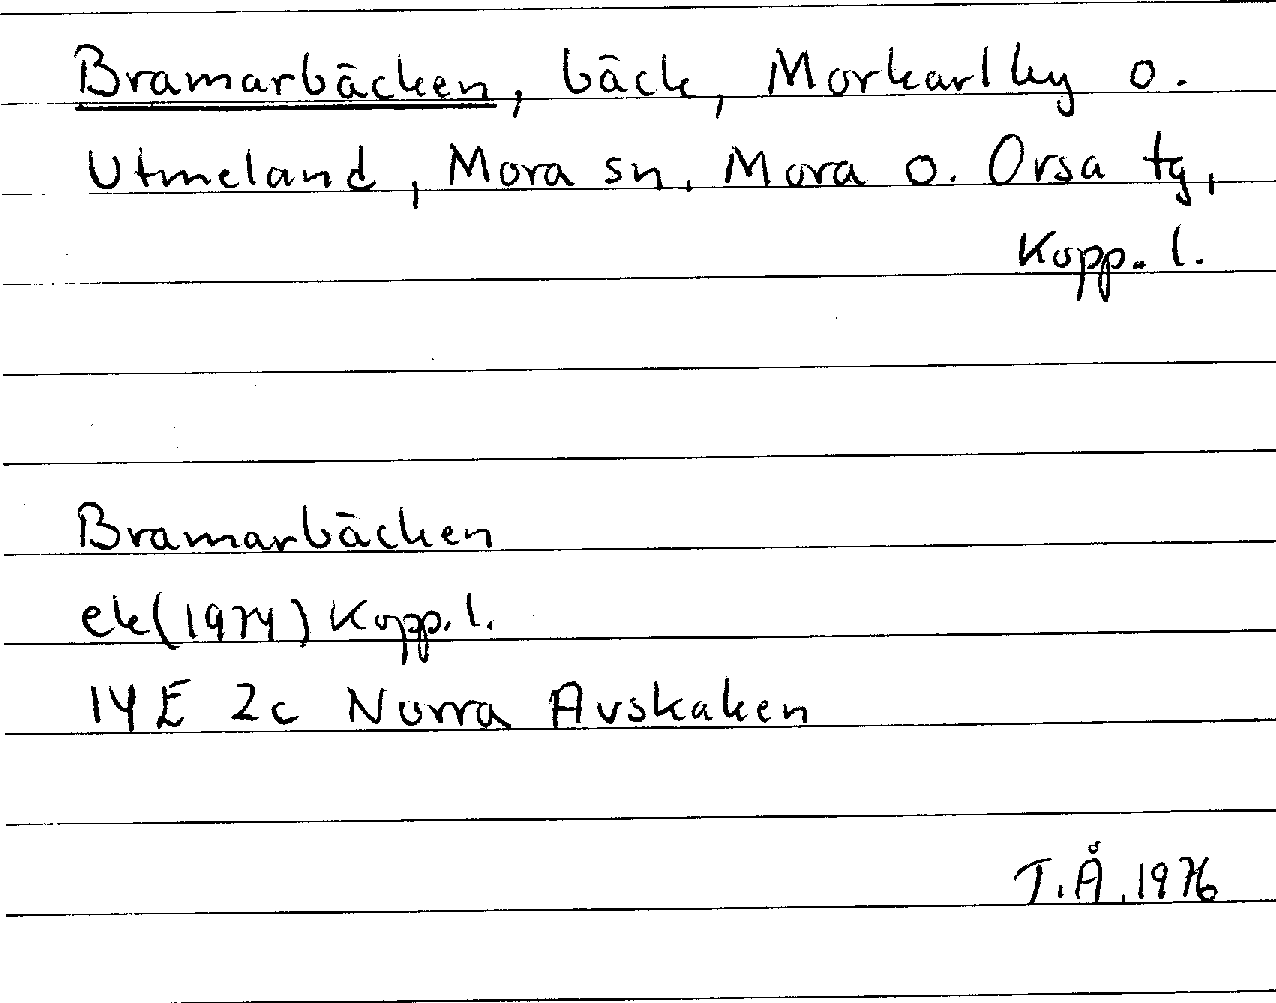 Bramarbäcken, bäck, Morkarlby o.
Utmeland, Mora sn, Mora o. Orsa tg,
Kopp. l.
Bramarbäcken
ek (1974) Kopp. l.
14E 2c Norra Avskaken
T.Å. 1976